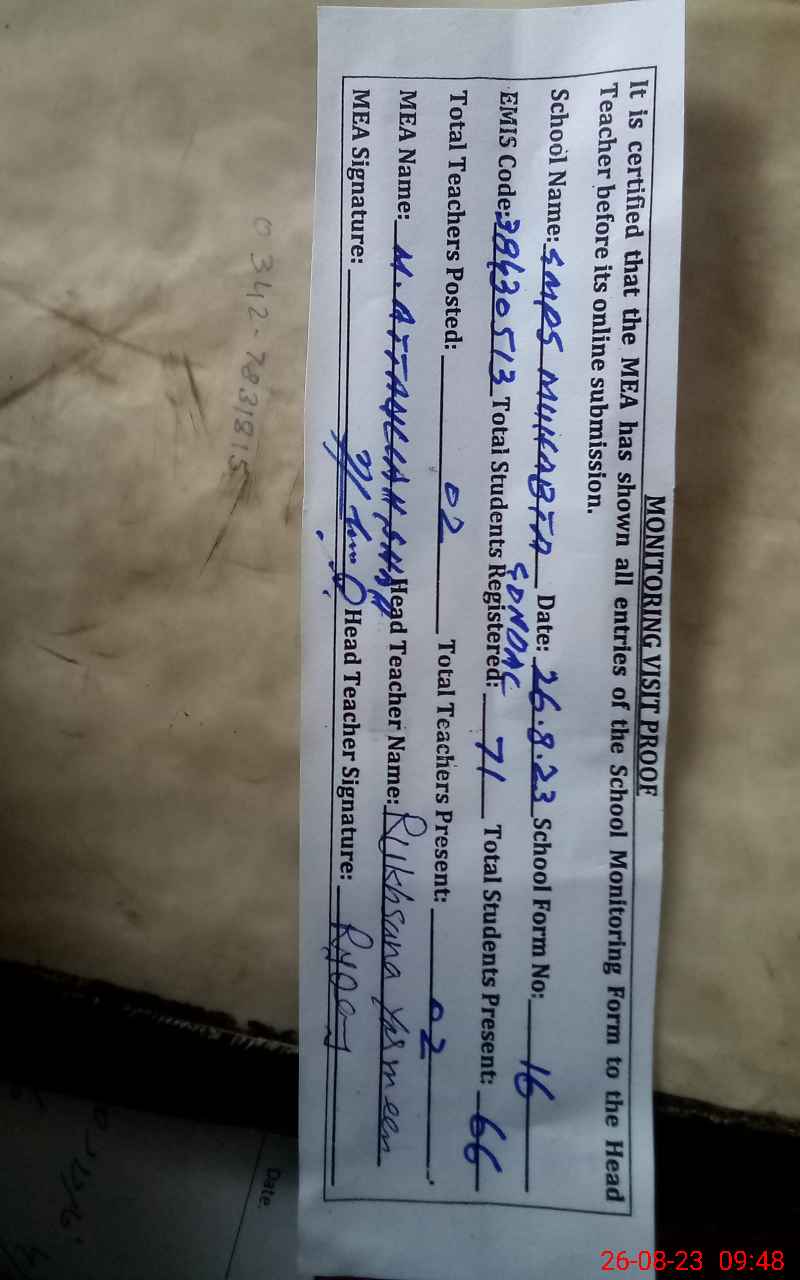 MONITORING VISIT PROOF
It is certified that the MEA has shown all entries of the School Monitoring Form to the Head
Teacher before its online submission.
School Name: GMPS MUHABTA Date: 26.8.23 School Form No: 16
GONDAL
EMIS Code: 38430513 Total Students Registered: 71 Total Students Present: 66
Total Teachers Posted: 02 Total Teachers Present: 02
MEA Name: M. ATTAULLAH SHAH Head Teacher Name: Rukhsana Yasmeen
MEA Signature: Head Teacher Signature:
0342-7831815
Date
26-08-23 09:48